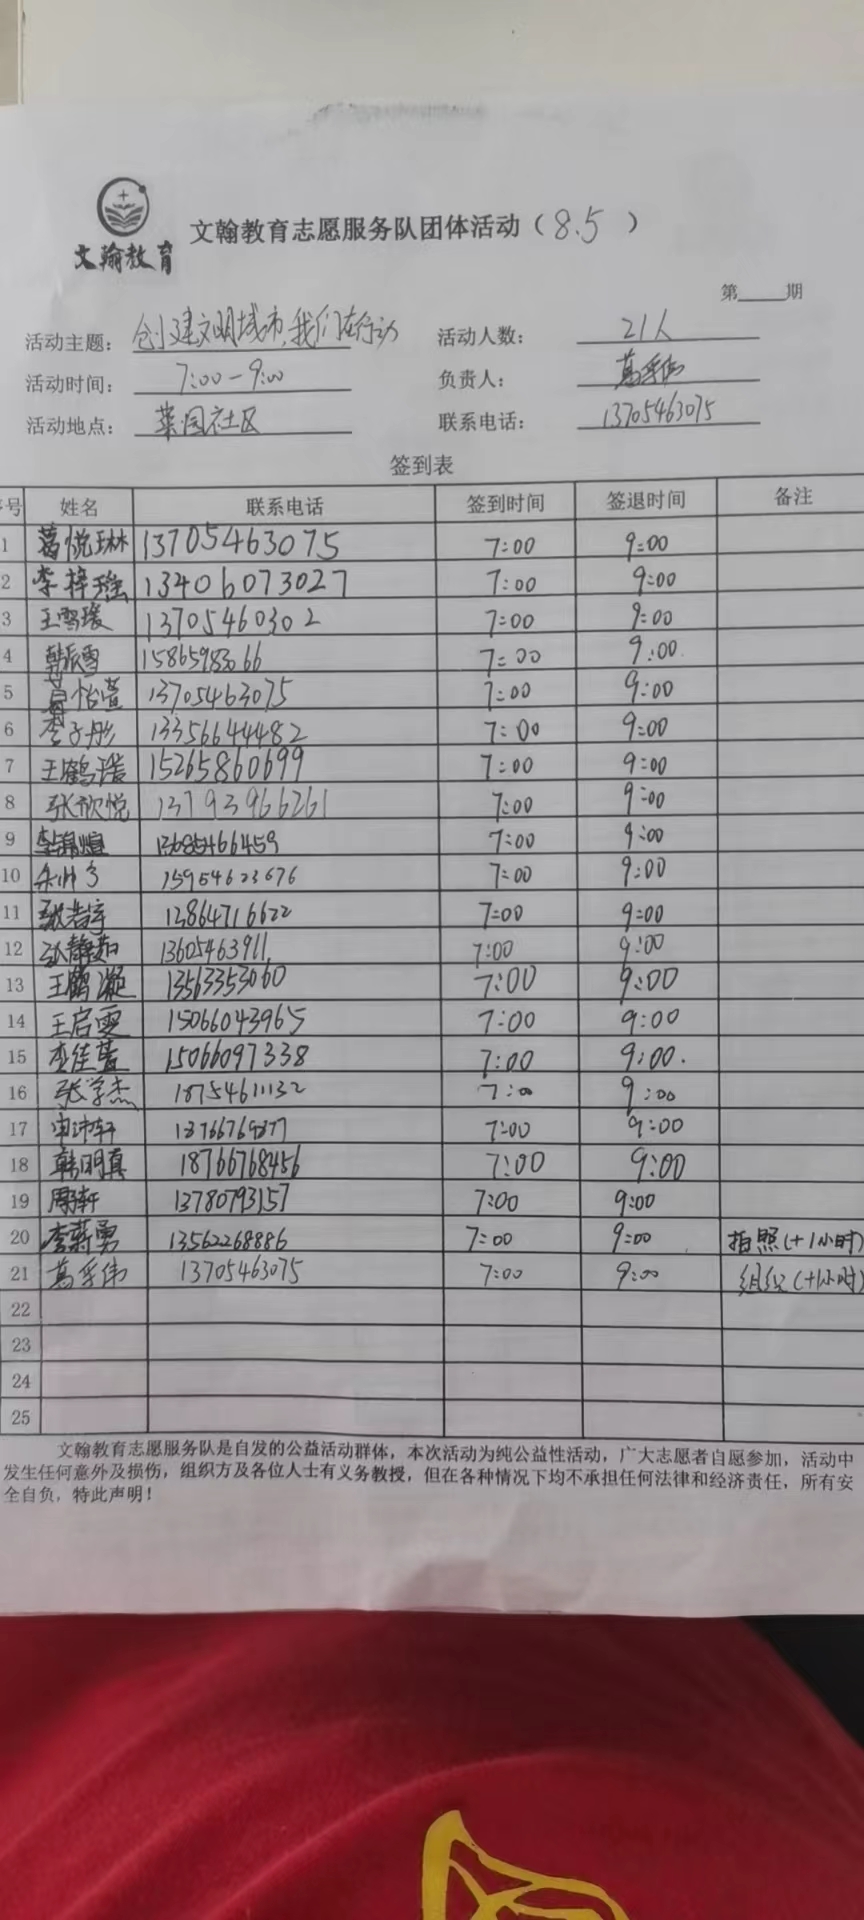 文翰教育
文翰教育志愿服务队团体活动（8.5）
第 期
活动主题：创建文明城市,我们在行动 活动人数：21人
活动时间：7:00-9:00 负责人：葛孚伟
活动地点：菜园社区 联系电话：13705463075
签到表
号 姓名 联系电话 签到时间 签退时间 备注
1 葛悦琳 13705463075 7:00 9:00
2 李梓瑶 13406073027 7:00 9:00
3 王雪瑗 13705460302 7:00 9:00
4 韩宸雪 15865983066 7:00 9:00
5 怡萱 13705463075 7:00 9:00
6 李子彤 13356644482 7:00 9:00
7 王鹤瑗 15265860699 7:00 9:00
8 张欣悦 13793966261 7:00 9:00
9 李锦煊 13685466459 7:00 9:00
10 15954623676 7:00 9:00
11 张浩宇 13864716622 7:00 9:00
12 张静茹 13605463911 7:00 9:00
13 王鹤凝 13563353060 7:00 9:00
14 王启雯 15066043965 7:00 9:00
15 李佳萱 15066097338 7:00 9:00.
16 张学杰 18754611132 7:00 9:00
17 7:00 9:00
18 韩明真 18766768456 7:00 9:00
19 周轩 13780793157 7:00 9:00
20 李薪勇 13562268886 7:00 9:00 拍照(+1小时)
21 葛孚伟 13705463075 7:00 9:00 组织(+1小时)
22
23
24
25
文翰教育志愿服务队是自发的公益活动群体，本次活动为纯公益性活动，广大志愿者自愿参加，活动中
发生任何意外及损伤，组织方及各位人士有义务教授，但在各种情况下均不承担任何法律和经济责任，所有安
全自负，特此声明！